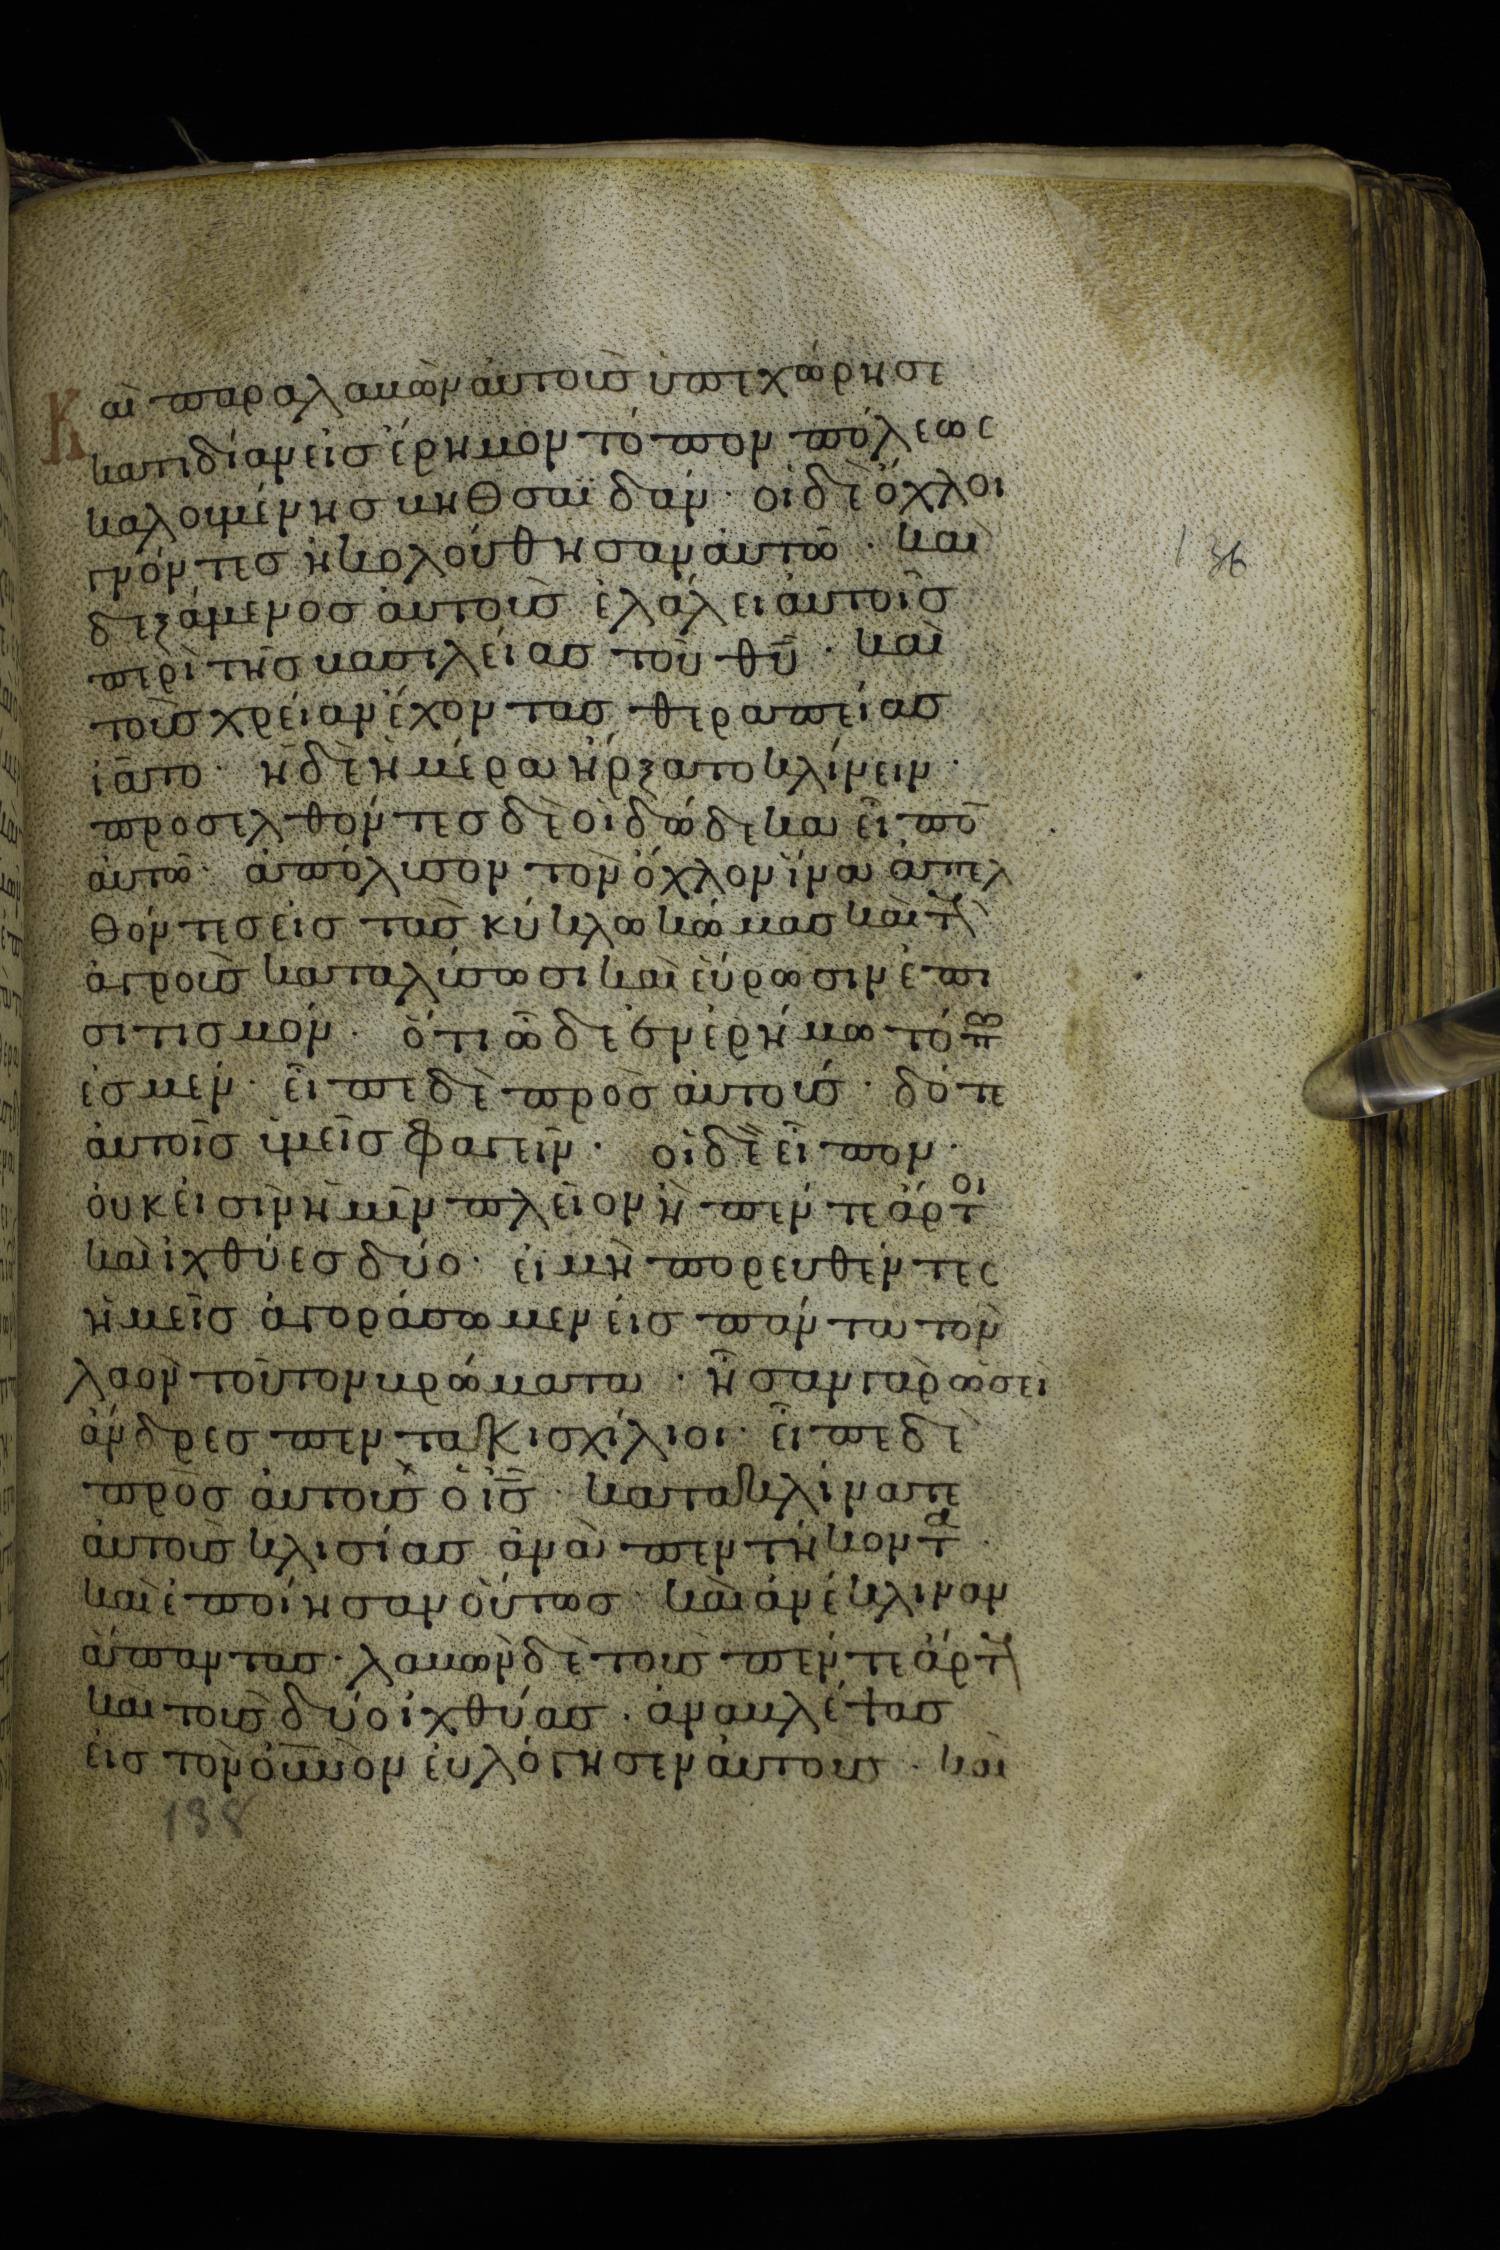 Καὶ παραλαβὼν αὐτοὺς ὑπεχώρησε
κατιδίαν εἰς ἔρημον τόπον πόλεως
καλουμένης βηθσαϊδάν· οἱ δὲ ὄχλοι
γνόντες ἠκολούθησαν αὐτῶ· καὶ
δεξάμενος αὐτοὺς ἐλάλει αὐτοῖς
περὶ τῆς βασιλείας τοῦ θῦ· καὶ
τοὺς χρείαν ἔχοντας θεραπείας
ἰᾶτο· ἡ δὲ ἡμέρα ἤρξατο κλίνειν·
προσελθόντες δὲ οἱ δώδεκα εἶπο̅
αὐτῶ· ἀπόλυσον τὸν ὄχλον ἵνα ἀπελ
θόντες εἰς τὰς κύκλω κώμας καὶ τ(οὺς)
ἀγροὺς καταλύσωσι καὶ εὕρωσιν ἐπι
σιτισμόν· ὅτι ὧδε ἐν ἐρήμω τόπω
ἐσμέν· εἶπε δὲ πρὸς αὐτούς· δότε
αὐτοῖς ὑμεῖς φαγεῖν· οἱ δὲ εἶπον·
οὐκ εἰσὶν ἡμῖν πλεῖον ἢ πέντε ἄρτοι
καὶ ἰχθύες δύο· εἰ μὴ πορευθέντες
ἡμεῖς ἀγοράσωμεν εἰς πάντα τὸν
λαὸν τοῦτον βρώματα· ἦσαν γὰρ ὡσεὶ
ἄνδρες πεντακισχίλιοι· εἶπε δὲ
πρὸς αὐτοὺς ὁ ις̅· κατακλίνατε
αὐτοὺς κλισίας ἀνὰ πεντήκοντα·
καὶ ἐποίησαν οὕτως· καὶ ἀνέκλιναν
ἅπαντας· λαβὼν δὲ τοὺς πέντε ἄρτ(ους)
καὶ τοὺς δύο ἰχθύας· ἀναβλέψας
εἰς τὸν οὐ̅νον εὐλόγησεν αὐτοὺς· καὶ
136
138